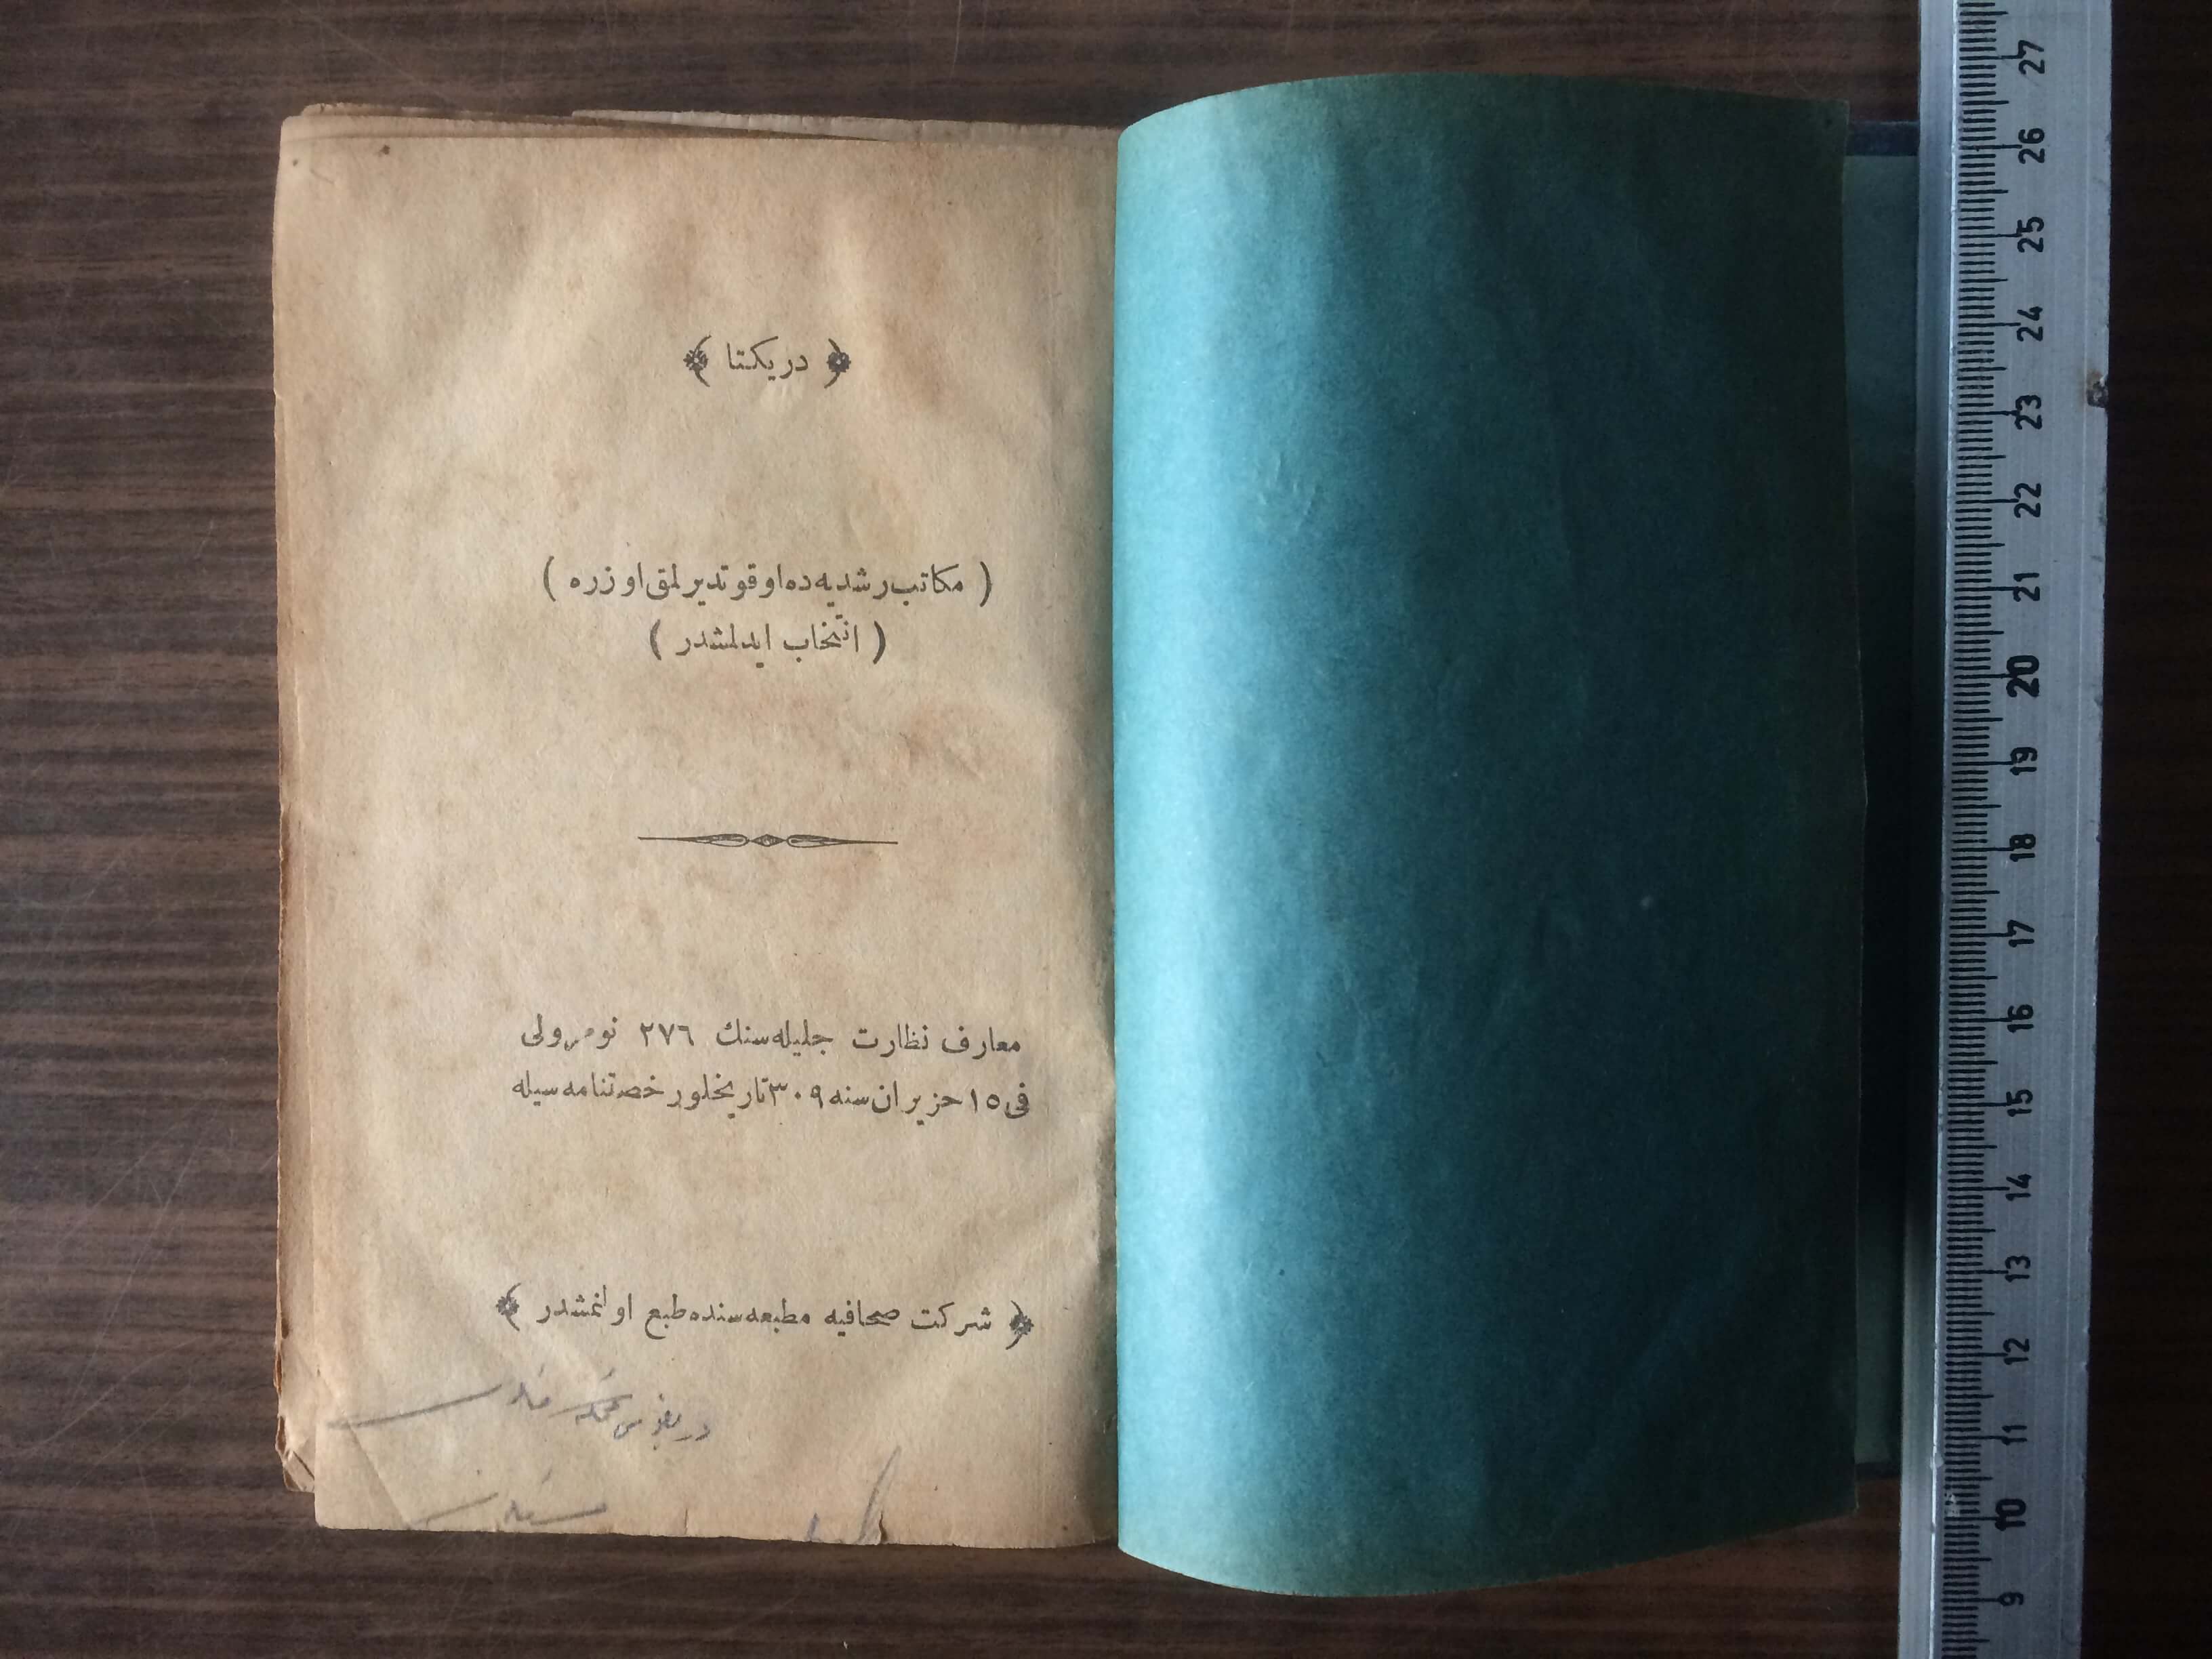 ﴿ دريكتا ﴾
( مكاتب رشديه ده اوقوتديرلمق اوزره )
( انتخاب ايدلمشدر )
معارف نظارت جليله سنك ٢٧٦ نومرولى
فى ١٥ حزيران سنه ٣٠٩ تاريخلو رخصتنامه سيله
﴿ شركت صحافيه مطبعه سنده طبع اولنمشدر ﴾
27
26
25
24
23
22
21
20
19
18
17
16
15
14
13
12
11
10
9